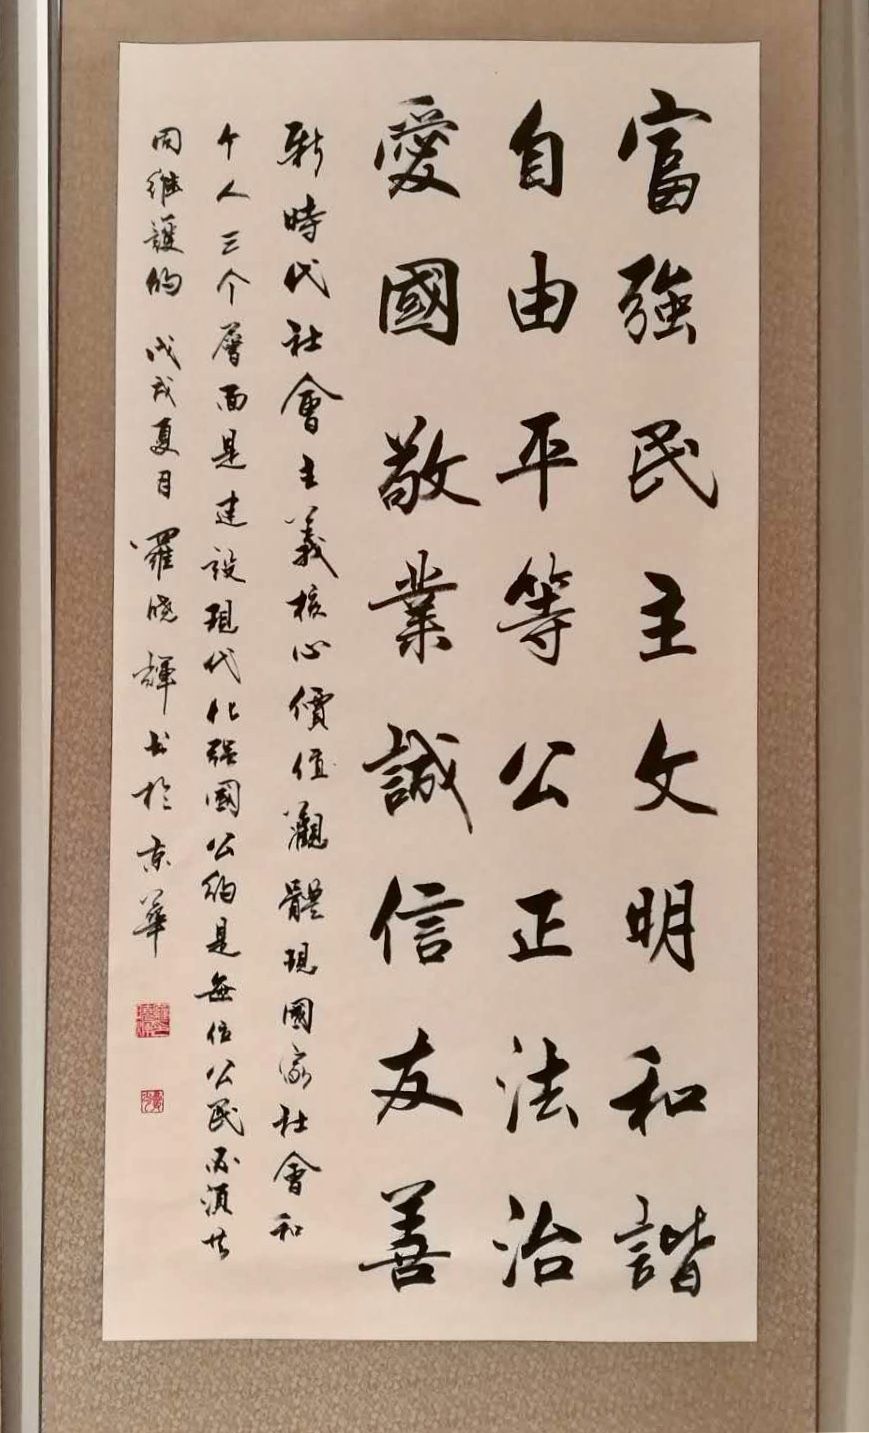 富強民主文明和諧
自由平等公正法治
愛國敬業誠信友善
新時代社會主義核心價值觀體現國家社會和
个人三个層面是建設現代化強國公約是每位公民必須共
同維護的 戊戌夏月 羅曉輝书於京華